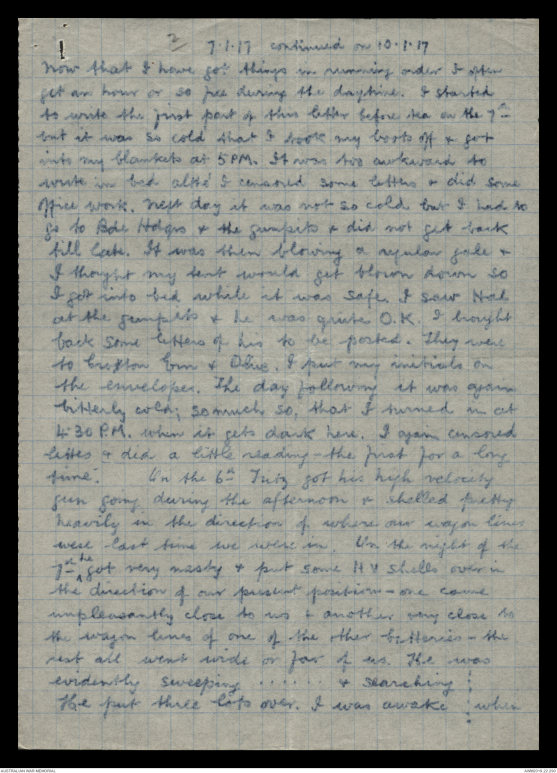 2
7.1.17 continued on 10.1.17
Now that I have got things in running order I often
get an hour or so free during the daytime. I started
to write the first part of this letter before tea on the 7th
but it was so cold that I took my boots off & got
into my blankets at 5 PM. It was too awkward to
write in bed altho' I censored some letters & did some
office work. Next day it was not so cold but I had to
go to Bde Hdqrs & the gunpits & did not get back
till late. It was then blowing a regular gale &
I thought my tent would get blown down so
I got into bed while it was safe. I saw Hal
at the gunpits & he was quite O.K. I brought
back some letters of his to be posted. They were
to Croxton Ern & Olive. I put my initials on
the envelopes. The day following it was again
bitterly cold; so much so, that I turned in at
4.30 P.M. when it gets dark here. I again censored
letters & did a little reading - the first for a long
time. On the 6th Fritz got his high velocity
gun going during the afternoon & shelled pretty
heavily in the direction of where our wagon lines
were last time we were in. On the night of the
7th he got very nasty & put some H V shells over in
the direction of our present position - one came
unpleasantly close to us & another very close to
the wagon lines of one of the other batteries - the
rest all went wide or far of us. He was
evidently sweeping ...... & searching
He put three lots over. I was awake when
AUSTRALIAN WAR MEMORIAL